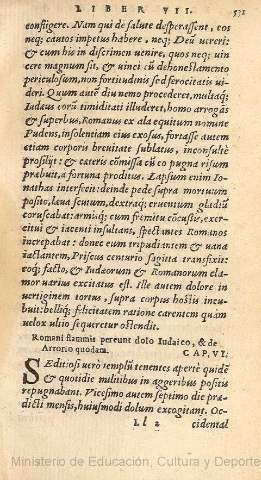 LIBER VII. 531
confligere. Nam qui de salute desperassent, eos
neq; cautos impetus habere, neq; Deũ uereri:
& cum his in discrimen uenire, quos neq; uin
cere magnum sit, & uinci cũ dehonestamento
periculosum, non fortitudinis sed ferocitatis ui-
deri. Quum autẽ diu nemo procederet, multaq;
Iudæus corũ timiditati illuderet, homo arrogãs
& superbus, Romanus ex ala equitum nomine
Pudens, insolentiam eius exosus, fortasse autem
etiam corporis breuitate sublatus, inconsultè
prosilijt: & cæteris cõmissa cũ eo pugna risum
præbuit, à fortuna proditus. Lapsum enim Io-
nathas interfecit: deinde pede supra mortuum
posito, læua scutum, dextraq; cruentum gladiũ
coruscabat: armisq; cum fremitu cõcussis, exer-
citui & iacenti insultans, spectantes Romanos
increpabat: donec eum trepudiantem & uana
iactantem, Priscus centurio sagitta transfixit:
eoq; facto, & Iudæorum & Romanorum cla-
mor uarius excitatus est. Ille autem dolore in
uertiginem tortus, supra corpus hostis incu-
buit: belliq; felicitatem ratione carentem quàm
uelox ultio sequeretur ostendit.
Romani flammis pereunt dolo Iudaico, & de
Artorio quodam. CAP. VI.
SEditiosi uerò templũ tenentes apertè quidẽ
& quotidie militibus in aggeribus positis
repugnabant. Vicesimo autem septimo die præ-
dicti mensis, huiusmodi dolum excogitant. Oc-
Ll 2 cidental
Ministerio de Educación, Cultura y Deporte